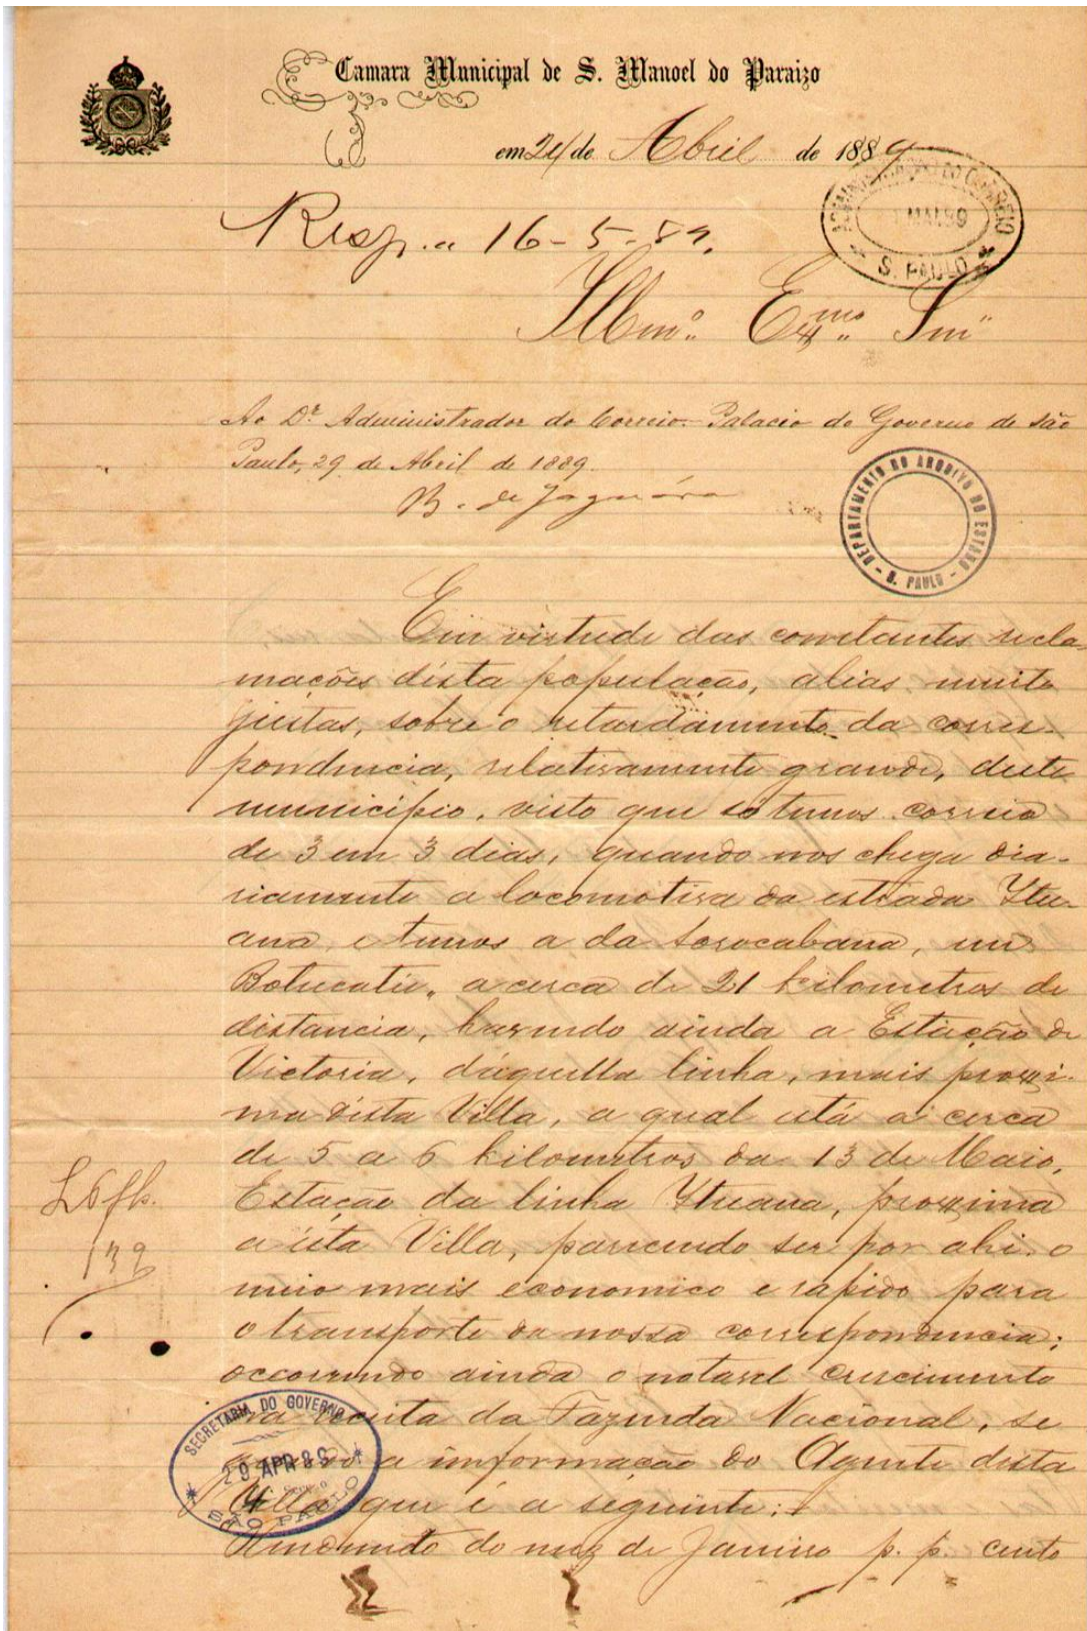 Camara Municipal de S. Manoel do Paraizo
em 24 de Abril de 1889
ADMINISTRAÇÃO DO CORREIO
MAI 89
S. PAULO
Resp. a 16-5-89.
Illmº Exmo Snr
Ao Dr Administrador do Correio. Palacio do Governo de São
Paulo, 29 de Abril de 1889.
B. de Jaguára
DEPARTAMENTO DO ARQUIVO DO ESTADO
- S. PAULO -
Em virtude das constantes recla-
mações d'esta população, alias muito
justas, sobre o retardamento da corres-
pondencia, relativamente grande, deste
municipio, visto que só temos correio
de 3 em 3 dias, quando nos chega dia-
riamente a locomotiva da estrada Ytu-
ana, e temos a da Sorocabana, em
Botucatú, a cerca de 21 kilometros de
distancia, havendo ainda a Estação de
Victoria, d'aquella linha, mais proxi-
ma d'esta Villa, a qual está a cerca
de 5 a 6 kilometros da 13 de Maio,
Estação da linha Ytuana, proxima
a esta Villa, parecendo ser por ahi o
meio mais economico e rapido para
o transporte da nossa correspondencia;
occorrendo ainda o notavel crescimento
da receita da Fazenda Nacional, se
a informação do Agente desta
Villa, que é a seguinte:
Rendimento do mez de Janeiro p. p. cento
L6 fls.
132
SECRETARIA DO GOVERNO
29 APR 89
SÃO PAULO